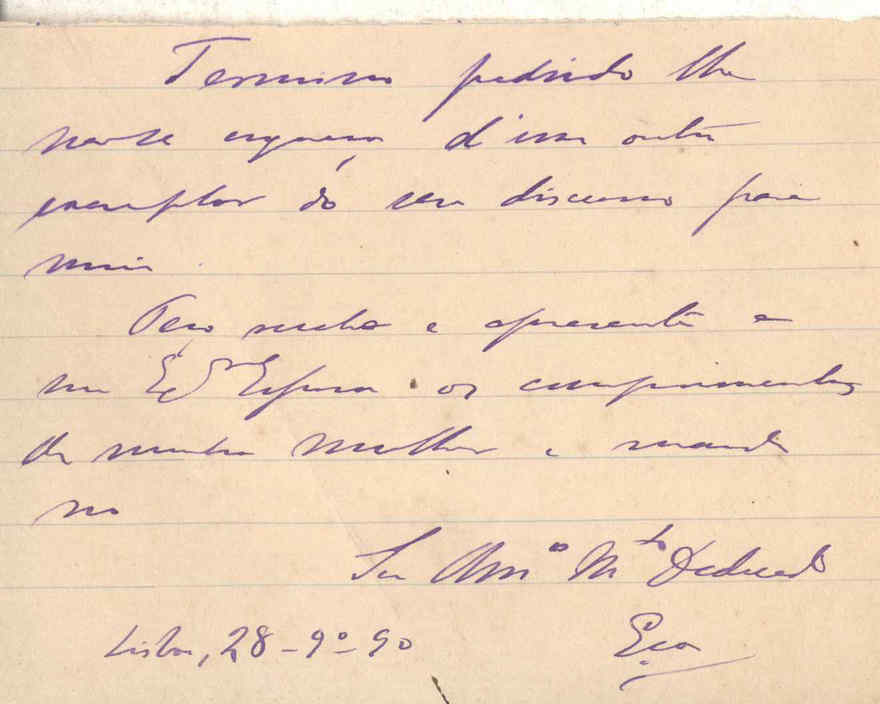 Termino pedindo lhe
não se esqueça d'um outro
exemplar do seu discurso para
mim.
Peço receba e apresente a
sua Exma Esposa os cumprimentos
de minha mulher e mande
no
Seu Amo Mto Dedicado
Eça
Lisboa, 28-9º-90